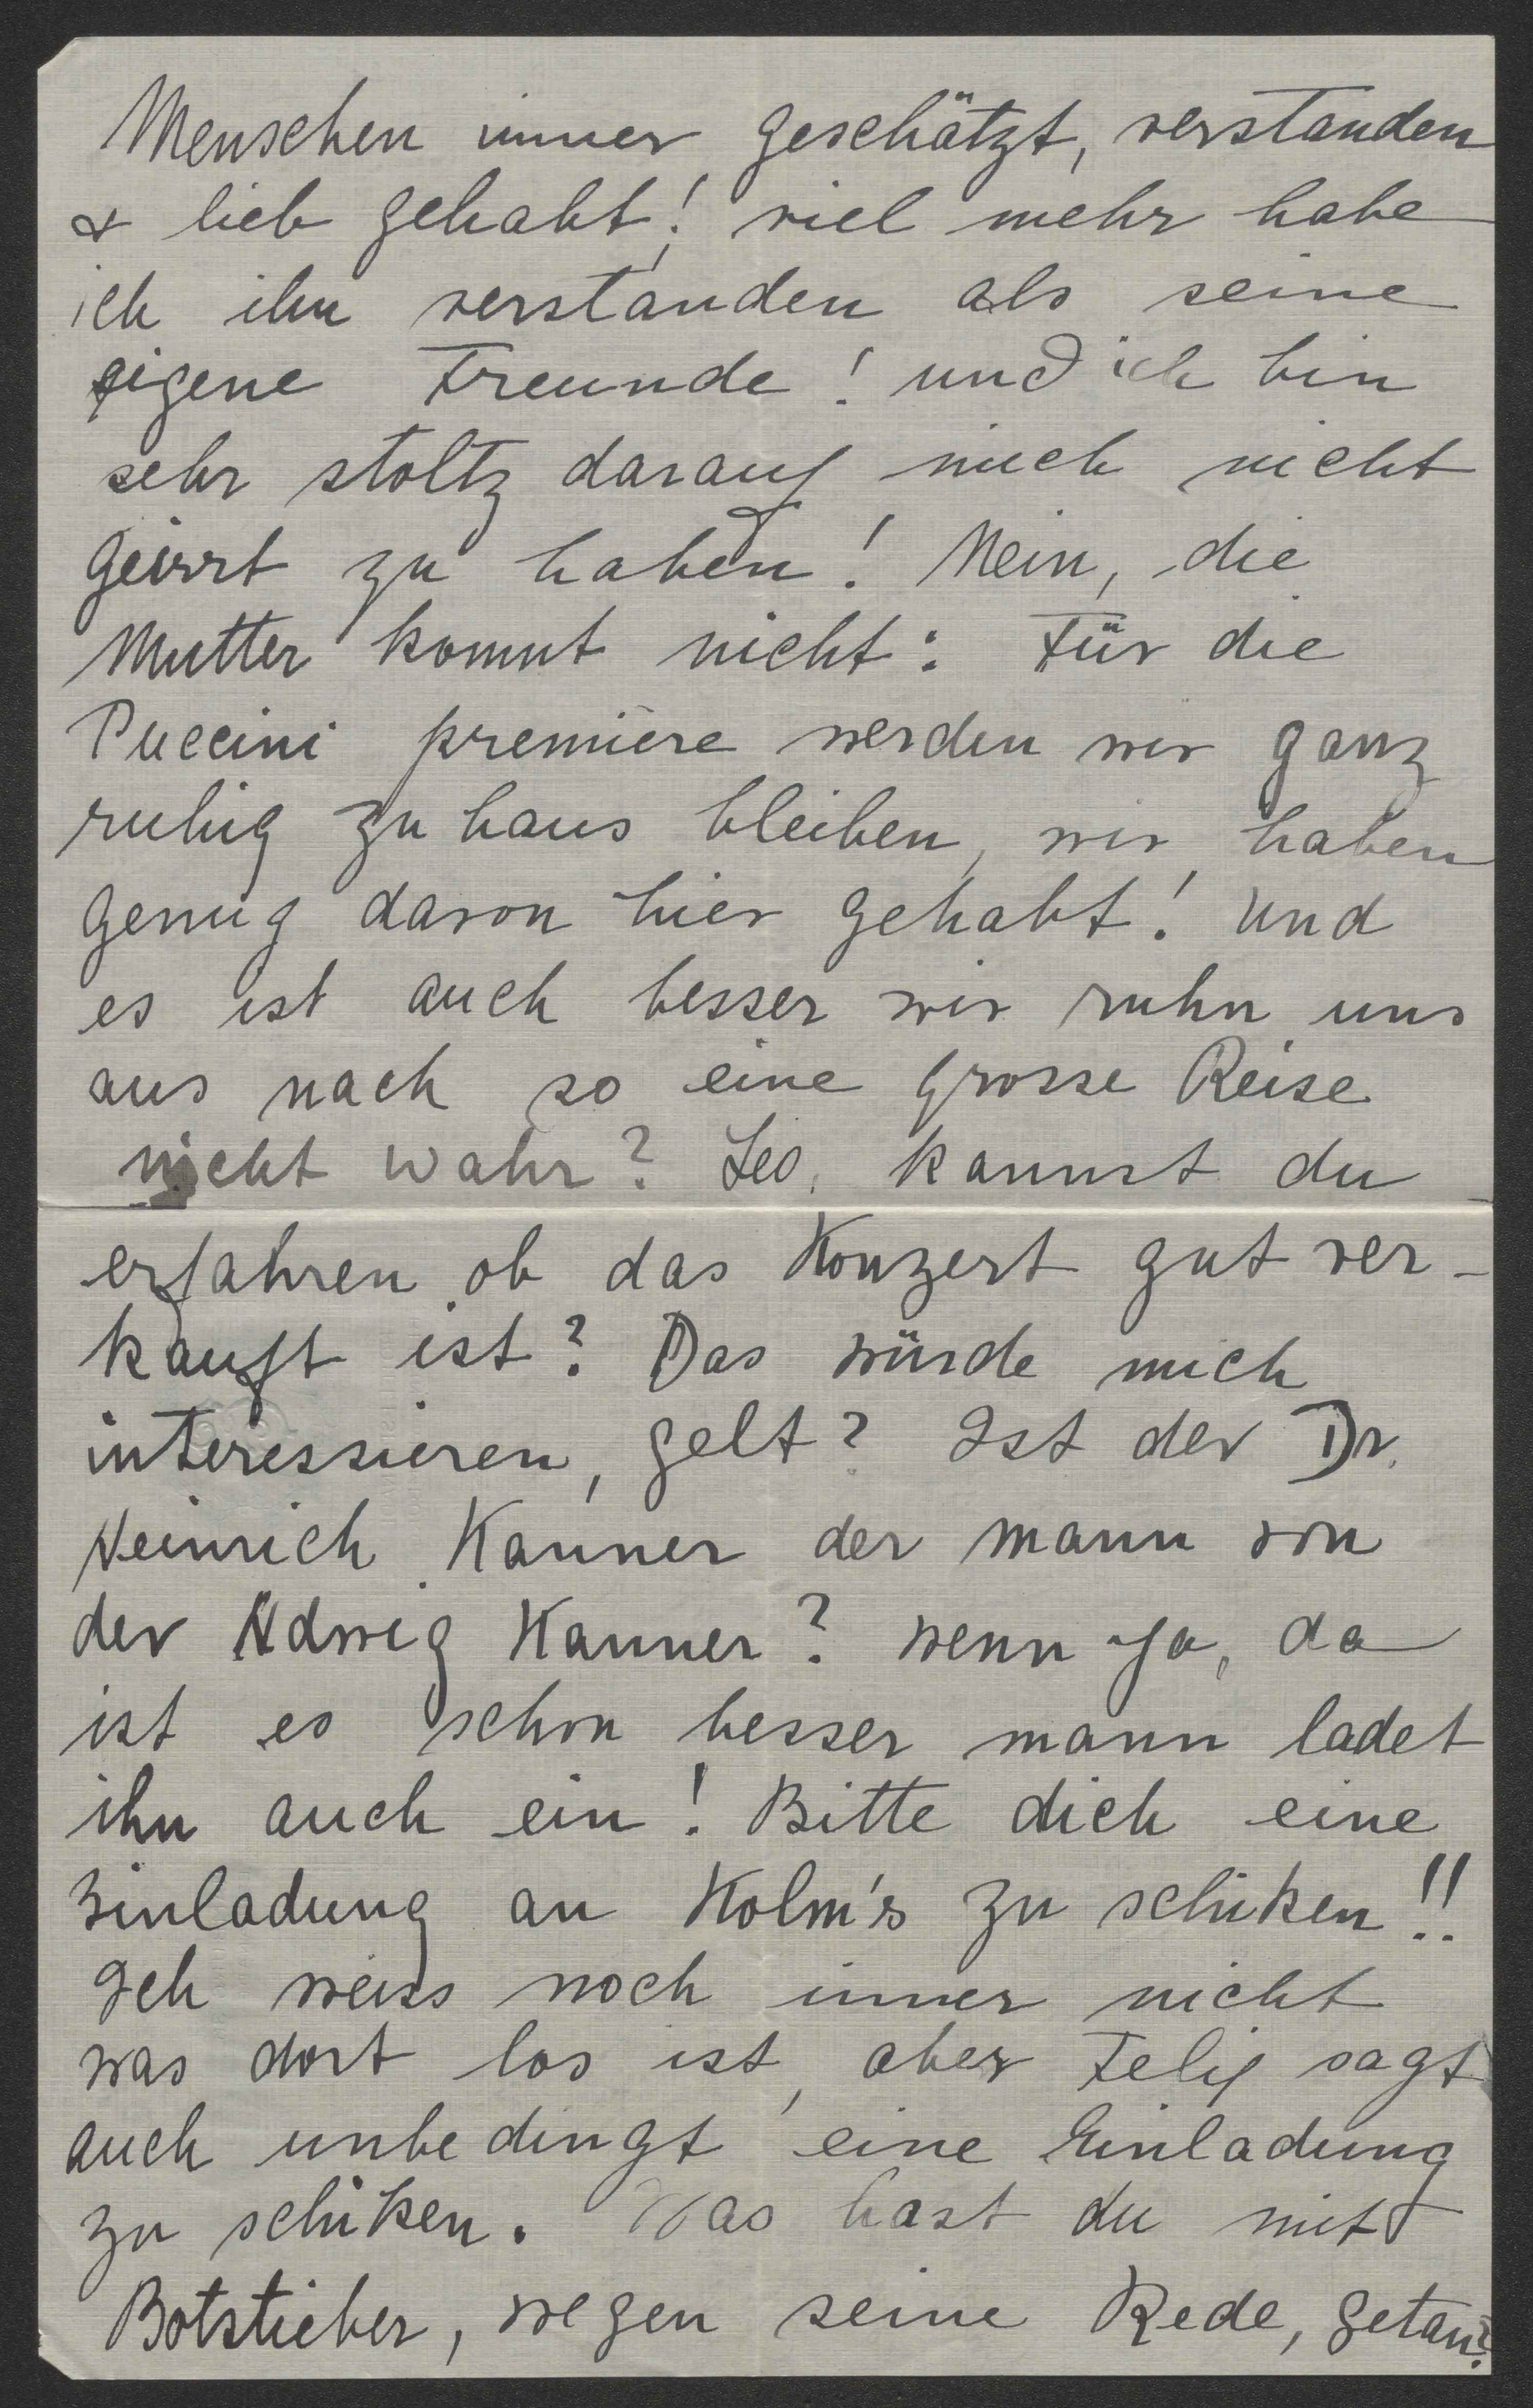 Menschen immer geschätzt, verstanden
& lieb gehabt! viel mehr habe
ich ihn verstanden als seine
eigene Freunde! und ich bin
sehr stoltz darauf mich nicht
geirrt zu haben! Nein, die
Mutter kommt nicht: Für die
Puccini première werden wir ganz
ruhig zu haus bleiben, wir haben
genug davon hier gehabt! Und
es ist auch besser wir ruhn uns
aus nach so eine grosse Reise
nicht wahr? Leo, kannst du
erfahren ob das Konzert gut ver-
kauft ist? Das würde mich
interessieren, gelt? Ist der Dr.
Heinrich Kanner der mann von
der Hdwig Kanner? wenn ja, da
ist es schon besser mann ladet
ihn auch ein! Bitte dich eine
Einladung an Kolm's zu schiken!!
Ich weiss noch immer nicht
was dort los ist, aber Felix sagt
auch unbedingt eine Einladung
zu schiken. Was hast du mit
Botstieber, wegen seine Rede, getan?